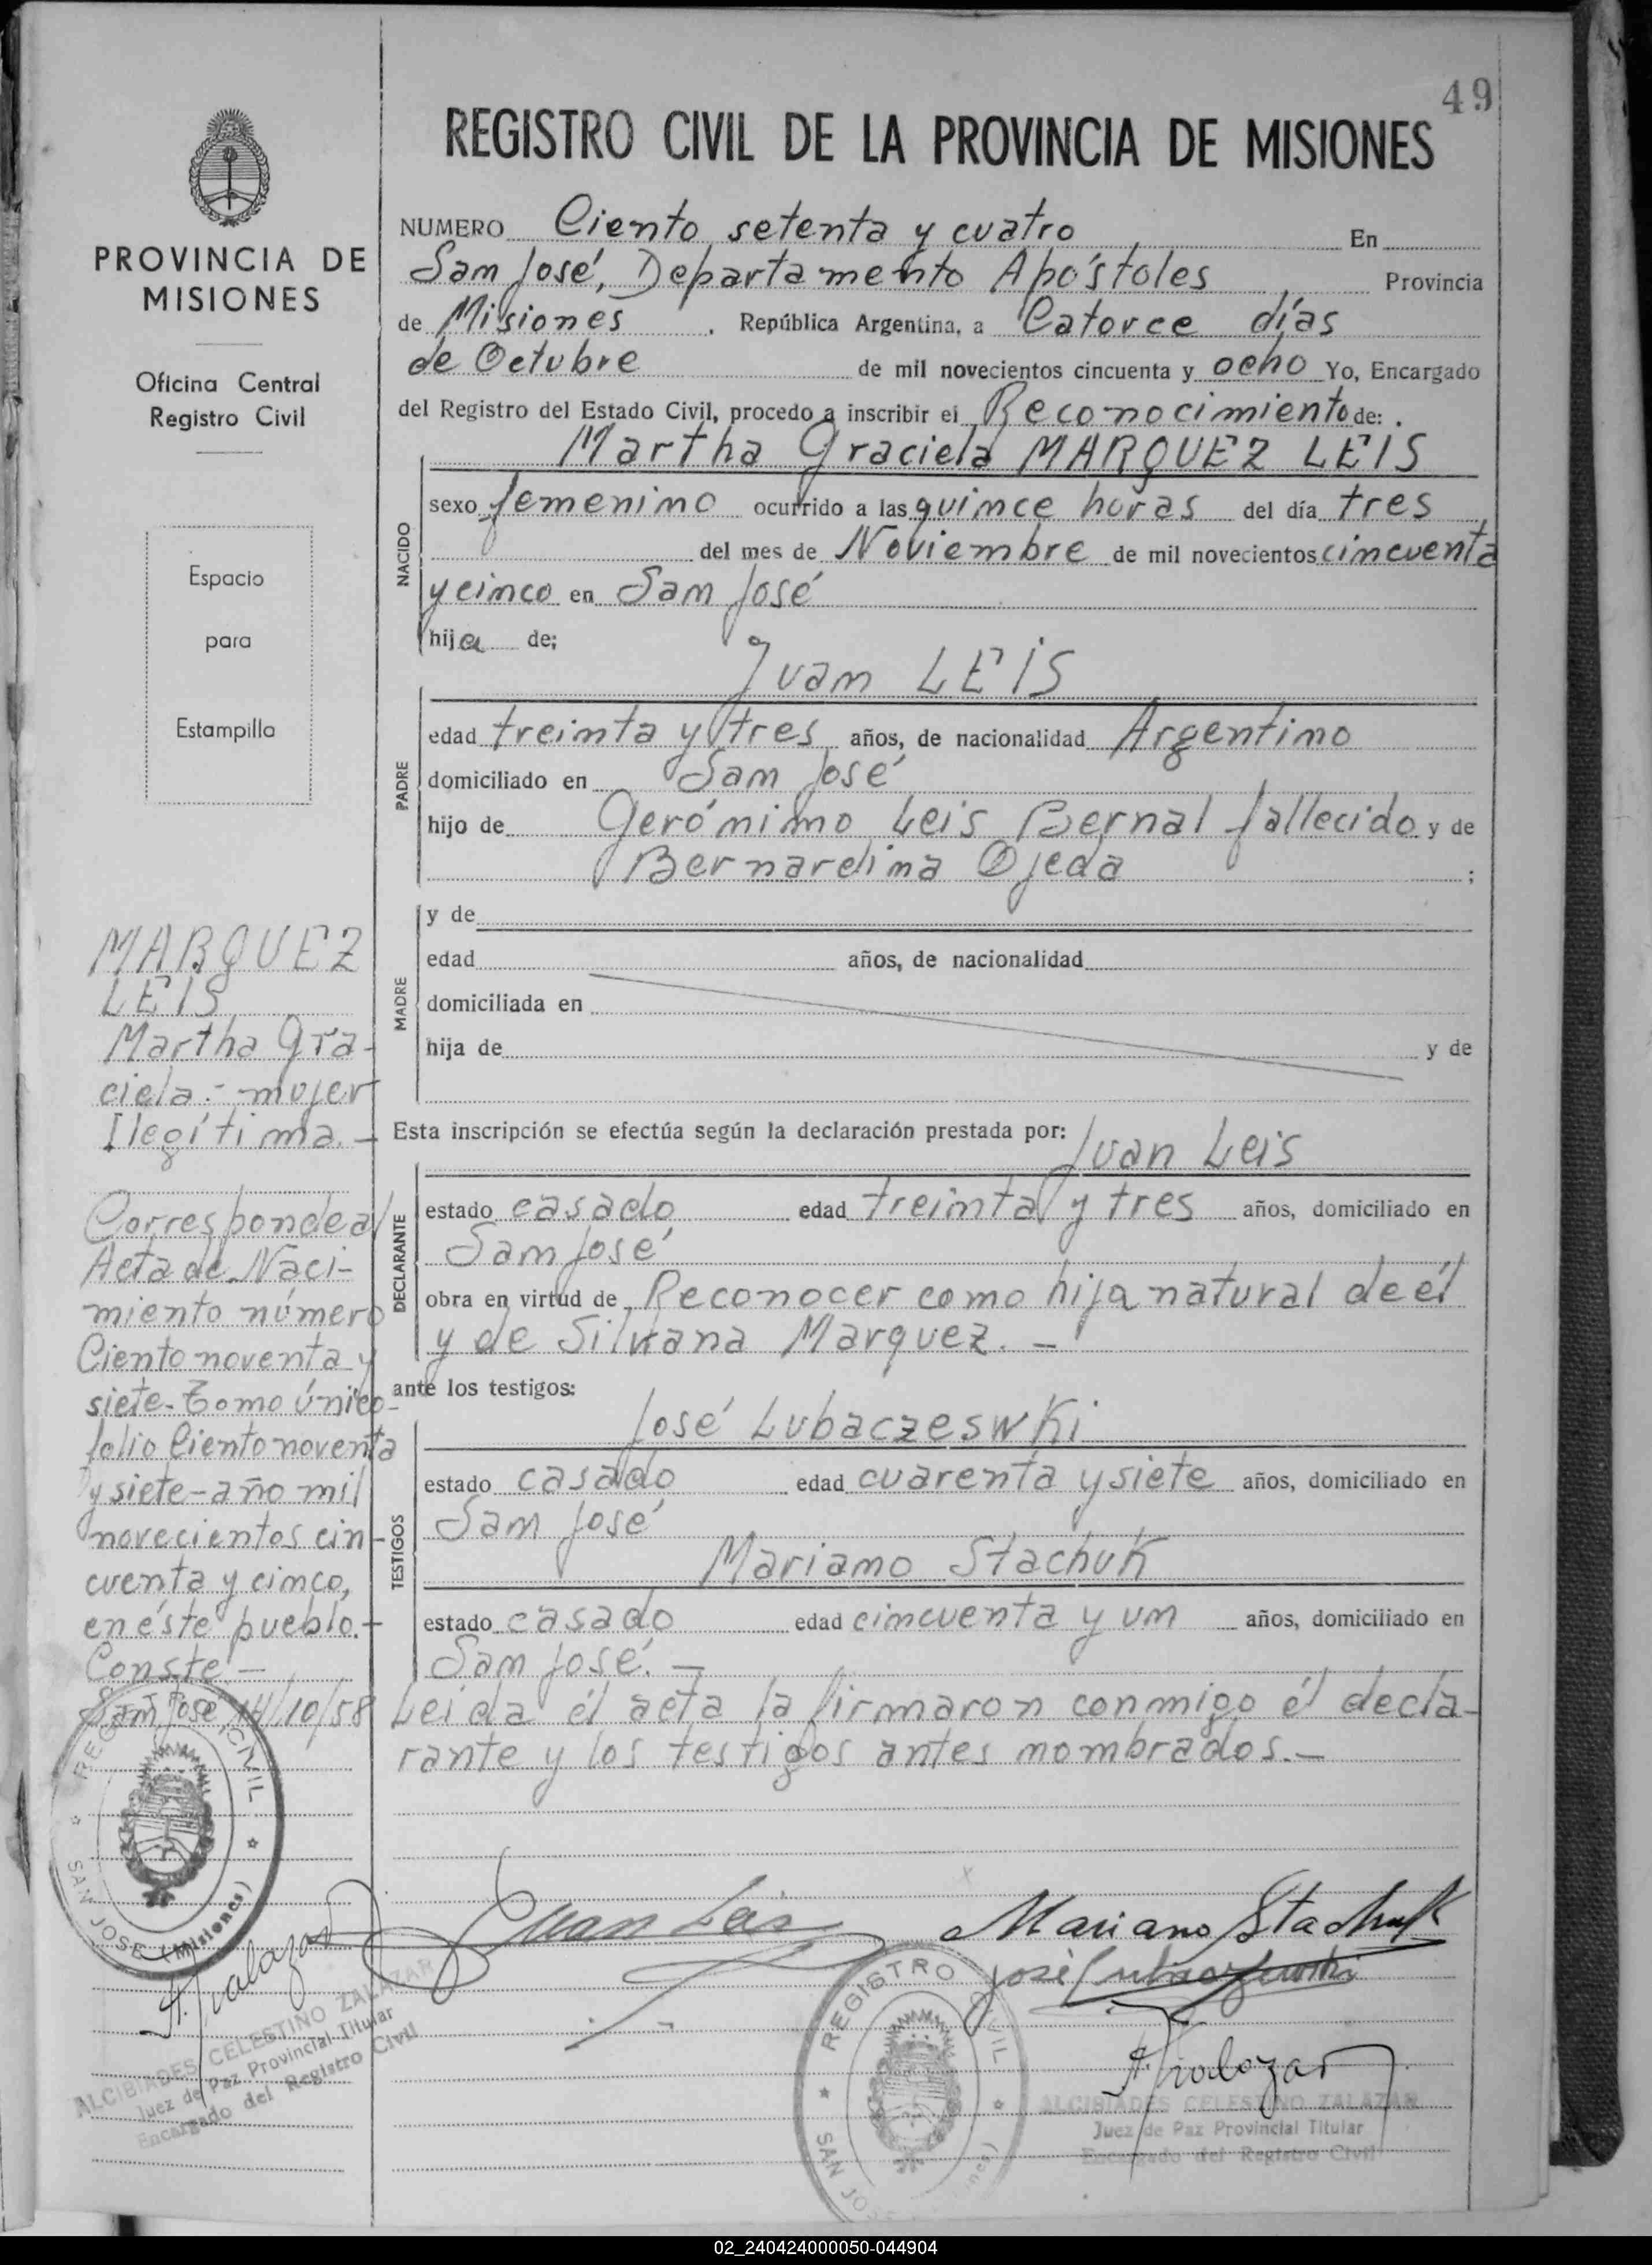 49
REGISTRO CIVIL DE LA PROVINCIA DE MISIONES
PROVINCIA DE
MISIONES
Oficina Central
Registro Civil
Espacio
para
Estampilla
NUMERO Ciento setenta y cuatro En
San José, Departamento Apóstoles Provincia
de Misiones, República Argentina, a Catorce días
de Octubre de mil novecientos cincuenta y ocho Yo, Encargado
del Registro del Estado Civil, procedo a inscribir el Reconocimiento de:
Martha Graciela MARQUEZ LEIS
NACIDO
sexo femenino ocurrido a las quince horas del día tres
del mes de Noviembre de mil novecientos cincuenta
y cinco en San José
hija de;
Juan LEIS
PADRE
edad treinta y tres años, de nacionalidad Argentino
domiciliado en San José
hijo de Gerónimo Leis Bernal fallecido y de
Bernardina Ojeda ;
MADRE
y de
edad años, de nacionalidad
domiciliada en
hija de y de
Esta inscripción se efectúa según la declaración prestada por:
Juan Leis
DECLARANTE
estado casado edad treinta y tres años, domiciliado en
San José
obra en virtud de Reconocer como hija natural de él
y de Silvana Marquez.-
ante los testigos:
José Lubaczeswki
TESTIGOS
estado casado edad cuarenta y siete años, domiciliado en
San José
Mariano Stachuk
estado casado edad cincuenta y un años, domiciliado en
San José.-
Leida él acta la firmaron conmigo él decla-
rante y los testigos antes nombrados.-
MARQUEZ
LEIS
Martha Gra-
ciela:- mujer
Ilegítima.-
Corresponde al
Acta de Naci-
miento número
Ciento noventa y
siete-Tomo único-
folio Ciento noventa
y siete-año mil
novecientos cin-
cuenta y cinco,
en éste pueblo.-
Conste.-
San José, 14/10/58
REGISTRO CIVIL
SAN JOSE (Misiones)
A. Zalazar
ALCIBIADES CELESTINO ZALAZAR
Juez de Paz Provincial Titular
Encargado del Registro Civil
Juan Leis
Mariano Stachuk
José Lubaczewski
REGISTRO CIVIL
SAN JO
A. Zalazar
ALCIBIADES CELESTINO ZALAZAR
Juez de Paz Provincial Titular
Encargado del Registro Civil
02_240424000050-044904